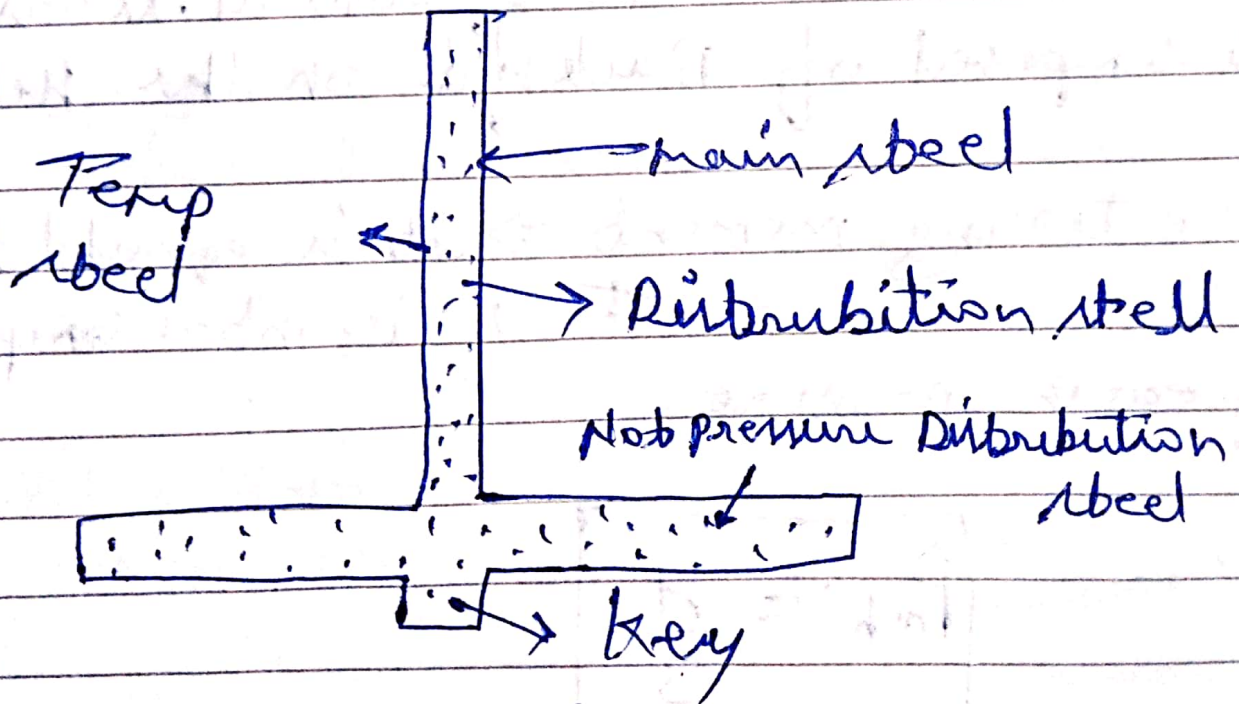 main steel
Temp
steel
Distrubition stell
Not pressure Distribution
steel
Key